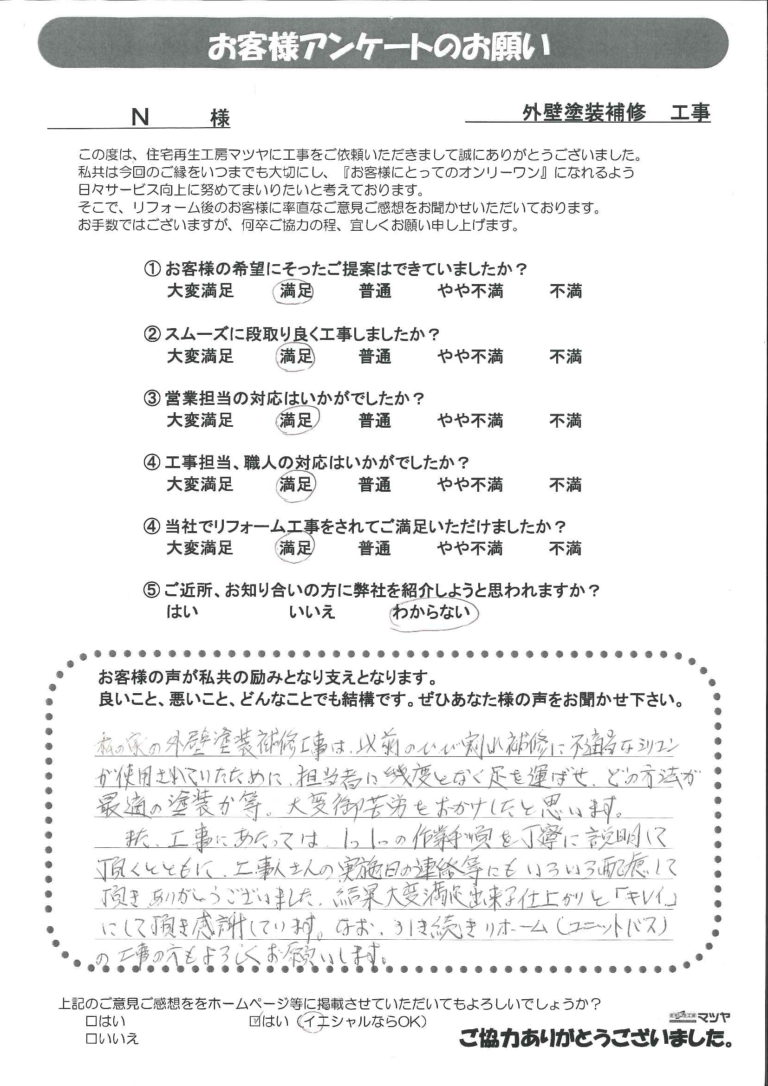 お客様アンケートのお願い
N 様 外壁塗装補修 工事
この度は、住宅再生工房マツヤに工事をご依頼いただきまして誠にありがとうございました。
私共は今回のご縁をいつまでも大切にし、『お客様にとってのオンリーワン』になれるよう
日々サービス向上に努めてまいりたいと考えております。
そこで、リフォーム後のお客様に率直なご意見ご感想をお聞かせいただいております。
お手数ではございますが、何卒ご協力の程、宜しくお願い申し上げます。
① お客様の希望にそったご提案はできていましたか？
大変満足 満足 普通 やや不満 不満
② スムーズに段取り良く工事しましたか？
大変満足 満足 普通 やや不満 不満
③ 営業担当の対応はいかがでしたか？
大変満足 満足 普通 やや不満 不満
④ 工事担当、職人の対応はいかがでしたか？
大変満足 満足 普通 やや不満 不満
④ 当社でリフォーム工事をされてご満足いただけましたか？
大変満足 満足 普通 やや不満 不満
⑤ ご近所、お知り合いの方に弊社を紹介しようと思われますか？
はい いいえ わからない
お客様の声が私共の励みとなり支えとなります。
良いこと、悪いこと、どんなことでも結構です。ぜひあなた様の声をお聞かせ下さい。
私の家の外壁塗装補修工事は、以前のひび割れ補修に不適当なシリコン
が使用されていたために、担当者に幾度となく足を運ばせ、どの方法が
最適の塗装か等、大変御苦労をおかけしたと思います。
また、工事にあたっては、1つ1つの作業手順を丁寧に説明して
頂くとともに、工事人さんの実施日の連絡等にもいろいろ配慮して
頂きありがとうございました。結果大変満足出来る仕上がりと「キレイ」
にして頂き感謝しています。なお、引き続きリホーム（ユニットバス）
の工事の方もよろしくお願いします。
上記のご意見ご感想ををホームページ等に掲載させていただいてもよろしいでしょうか？
□はい ☑はい（イニシャルならOK）
□いいえ
マツヤ
ご協力ありがとうございました。